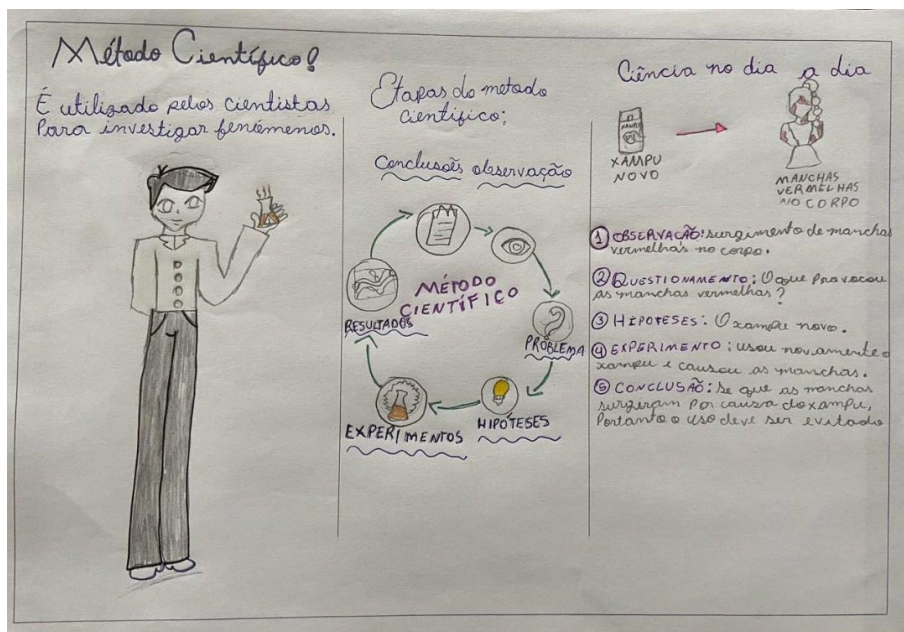 Método Científico!
É utilizado pelos cientistas
Para investigar fenômenos.
Etapas do metodo
científico:
Conclusões observação
MÉTODO
CIENTÍFICO
RESULTADOS
PROBLEMA
EXPERIMENTOS
HIPÓTESES
Ciência no dia a dia
XAMPU
NOVO
MANCHAS
VERMELHAS
NO CORPO
1 OBSERVAÇÃO: surgimento de manchas
vermelhas no corpo.
2 QUESTIONAMENTO: O que provocou
as manchas vermelhas?
3 HIPOTESES: O xampu novo.
4 EXPERIMENTO: usou novamente o
xampu e causou as manchas.
5 CONCLUSÃO: Se que as manchas
surgiram por causa do xampu,
Portanto o uso deve ser evitado